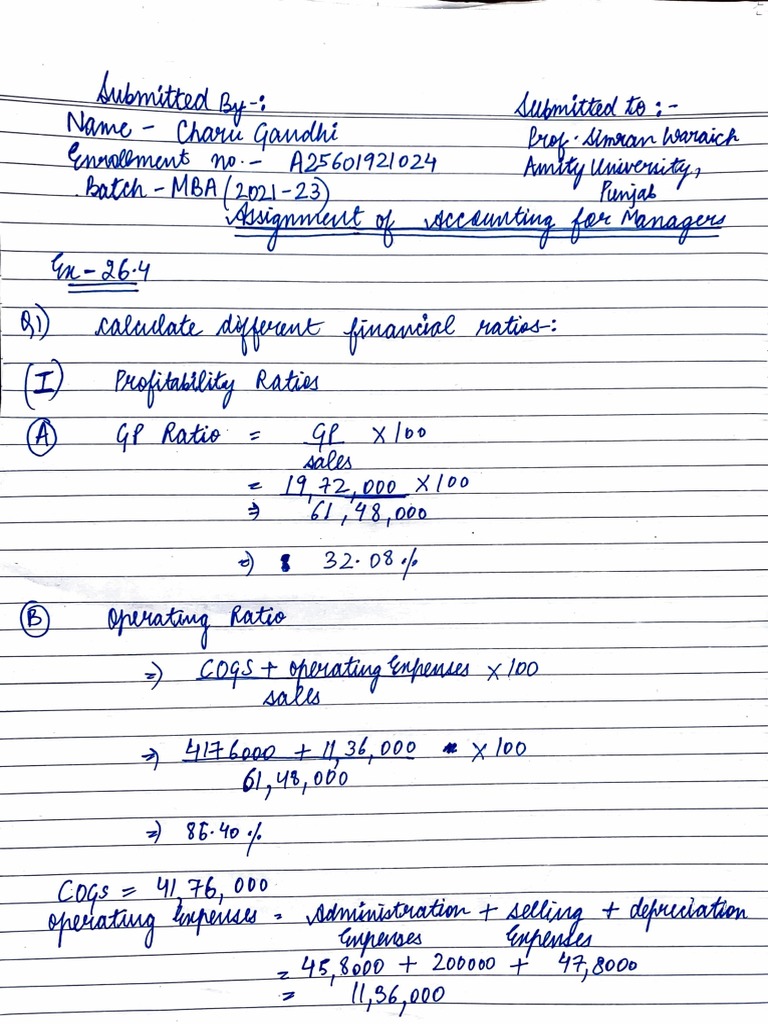 Submitted By -:
Submitted to :-
Name - Charu Gandhi
Prof. Simran Waraich
Enrollment no. - A25601921024
Amity University,
Batch - MBA (2021-23)
Punjab
Assignment of Accounting for Managers
Ex - 26.4
Q1) calculate different financial ratios-:
(I) Profitability Ratios
(A) GP Ratio = GP × 100
sales
= 19,72,000 × 100
⇒ 61,48,000
⇒) 32.08 %
(B) Operating Ratio
⇒) COGS + operating Expenses × 100
sales
⇒) 4176000 + 11,36,000 × 100
61,48,000
⇒) 86.40 %
COGS = 41,76,000
operating Expenses = Administration + selling + depreciation
Expenses Expenses
= 45,8000 + 200000 + 47,8000
= 11,36,000